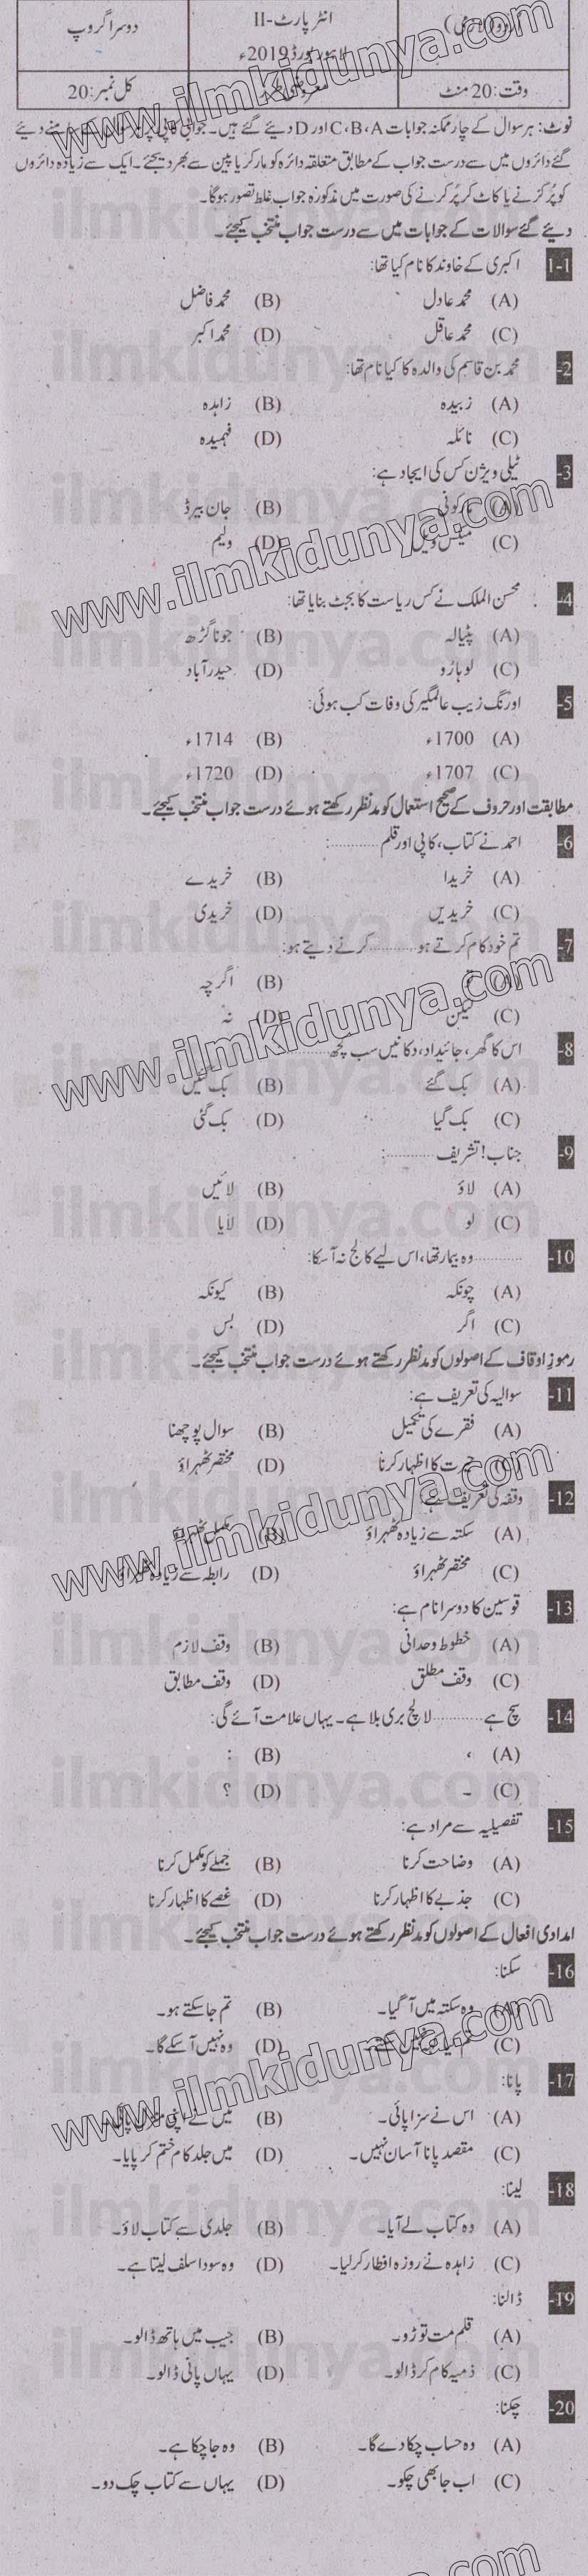 اردو (لازمی) انٹر پارٹ-II دوسرا گروپ
لاہور بورڈ 2019ء
وقت: 20 منٹ معروضی کل نمبر: 20
نوٹ: ہر سوال کے چار ممکنہ جوابات C، B، A اور D دیئے گئے ہیں۔ جوابی کاپی پر ہر سوال کے سامنے دیئے
گئے دائروں میں سے درست جواب کے مطابق متعلقہ دائرہ کو مارکر یا پین سے بھر دیجئے۔ ایک سے زیادہ دائروں
کو پُر کرنے یا کاٹ کر پُر کرنے کی صورت میں مذکورہ جواب غلط تصور ہوگا۔
دیئے گئے سوالات کے جوابات میں سے درست جواب منتخب کیجئے۔
1-1 اکبری کے خاوند کا نام کیا تھا:
(A) محمد عادل (B) محمد فاضل
(C) محمد عاقل (D) محمد اکبر
-2 محمد بن قاسم کی والدہ کا کیا نام تھا:
(A) زبیدہ (B) زاہدہ
(C) نائلہ (D) فہمیدہ
-3 ٹیلی ویژن کس کی ایجاد ہے:
(A) مارکونی (B) جان بیرڈ
(C) میکس ویل (D) ولیم
-4 محسن الملک نے کس ریاست کا بجٹ بنایا تھا:
(A) پٹیالہ (B) جوناگڑھ
(C) لوہارو (D) حیدرآباد
-5 اورنگ زیب عالمگیر کی وفات کب ہوئی:
(A) 1700ء (B) 1714ء
(C) 1707ء (D) 1720ء
مطابقت اور حروف کے صحیح استعمال کو مدنظر رکھتے ہوئے درست جواب منتخب کیجئے۔
-6 احمد نے کتاب، کاپی اور قلم ............:
(A) خریدا (B) خریدے
(C) خریدیں (D) خریدی
-7 تم خود کام کرتے ہو ............ کرنے دیتے ہو:
(A) تو (B) اگرچہ
(C) لیکن (D) نہ
-8 اس کا گھر، جائیداد، دکانیں سب کچھ ............
(A) بک گئے (B) بک گئیں
(C) بک گیا (D) بک گئی
-9 جناب! تشریف ............:
(A) لاؤ (B) لائیں
(C) لو (D) لایا
-10 ............ وہ بیمار تھا، اس لیے کالج نہ آسکا:
(A) چونکہ (B) کیونکہ
(C) اگر (D) بس
رموز اوقاف کے اصولوں کو مدنظر رکھتے ہوئے درست جواب منتخب کیجئے۔
-11 سوالیہ کی تعریف ہے:
(A) فقرے کی تکمیل (B) سوال پوچھنا
(C) حیرت کا اظہار کرنا (D) مختصر ٹھہراؤ
-12 وقفہ کی تعریف ہے:
(A) سکتہ سے زیادہ ٹھہراؤ (B) مکمل ٹھہراؤ
(C) مختصر ٹھہراؤ (D) رابطہ سے زیادہ ٹھہراؤ
-13 قوسین کا دوسرا نام ہے:
(A) خطوط وحدانی (B) وقف لازم
(C) وقف مطلق (D) وقف مطابق
-14 سچ ہے ............ لالچ بری بلا ہے۔ یہاں علامت آئے گی:
(A) ، (B) :
(C) ۔ (D) ؟
-15 تفصیلیہ سے مراد ہے:
(A) وضاحت کرنا (B) جملے کو مکمل کرنا
(C) جذبے کا اظہار کرنا (D) غصے کا اظہار کرنا
امدادی افعال کے اصولوں کو مدنظر رکھتے ہوئے درست جواب منتخب کیجئے۔
-16 سکنا:
(A) وہ سکتہ میں آگیا۔ (B) تم جا سکتے ہو۔
(C) تم (D) وہ نہیں آسکے گا۔
-17 پانا:
(A) اس نے سزا پائی۔ (B) میں نے اپنی
(C) مقصد پانا آسان نہیں۔ (D) میں جلد کام ختم کر پایا۔
-18 لینا:
(A) وہ کتاب لے آیا۔ (B) جلدی سے کتاب لاؤ۔
(C) زاہدہ نے روزہ افطار کر لیا۔ (D) وہ سودا سلف لیتا ہے۔
-19 ڈالنا:
(A) قلم مت توڑو۔ (B) جیب میں ہاتھ ڈالو۔
(C) ذمیہ کام کر ڈالو۔ (D) یہاں پانی ڈالو۔
-20 چکنا:
(A) وہ حساب چکا دے گا۔ (B) وہ جا چکا ہے۔
(C) اب جا بھی چکو۔ (D) یہاں سے کتاب چک دو۔
www.ilmkidunya.com